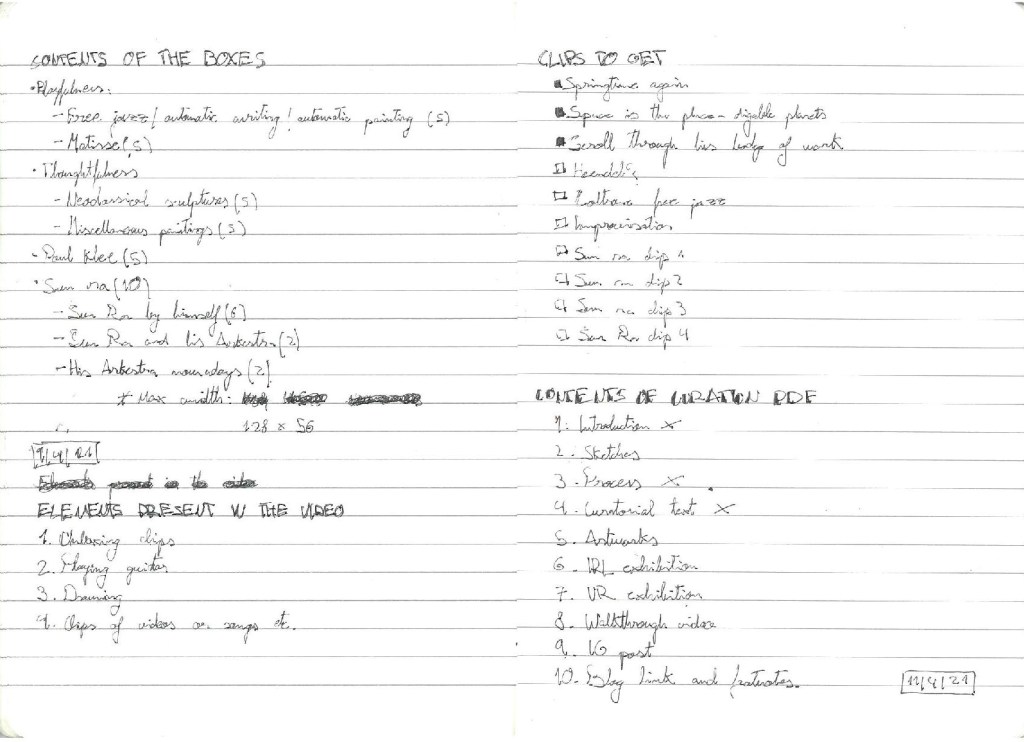 CONTENTS OF THE BOXES
• Playfulness:
- Free jazz / automatic writing / automatic painting (5)
- Matisse (5)
• Thoughtfulness
- Neoclassical sculptures (5)
- Miscellaneous paintings (5)
- Paul Klee (5)
• Sun ra (10)
- Sun Ra by himself (6)
- Sun Ra and his Arkestra (2)
- His Arkestra nowadays (2)
* Max width:
128 × 56
9/4/21
ELEMENTS PRESENT IN THE VIDEO
1. Unboxing clips
2. Playing guitar
3. Drawing
4. Clips of videos or songs etc.
CLIPS TO GET
Springtime again
Space is the place - digable planets
Scroll through his body of work
Coltrane free jazz
Improvisation
Sun ra clip 1
Sun ra clip 2
Sun ra clip 3
Sun Ra clip 4
CONTENTS OF CURATION PDF
1. Introduction ×
2. Sketches
3. Process ×
4. Curatorial text ×
5. Artworks
6. IRL exhibition
7. VR exhibition
8. Walkthrough video
9. IG post
10. Blog link and footnotes.
11/4/21